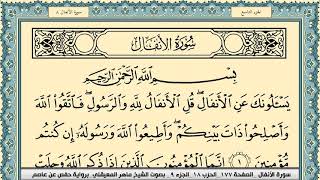 الجزء التاسع
سورة الأنفال ٨
سُورَةُ الأَنفَالِ
بِسْمِ اللَّهِ الرَّحْمَٰنِ الرَّحِيمِ
يَسْـَٔلُونَكَ عَنِ ٱلْأَنفَالِۖ قُلِ ٱلْأَنفَالُ لِلَّهِ وَٱلرَّسُولِۖ فَٱتَّقُوا۟ ٱللَّهَ
وَأَصْلِحُوا۟ ذَاتَ بَيْنِكُمْۖ وَأَطِيعُوا۟ ٱللَّهَ وَرَسُولَهُۥٓ إِن كُنتُم
مُّؤْمِنِينَ ١ إِنَّمَا ٱلْمُؤْمِنُونَ ٱلَّذِينَ إِذَا ذُكِرَ ٱللَّهُ وَجِلَتْ
سورة الأنفال الصفحة ١٧٧ الحزب ١٨ الجزء ٩ بصوت الشيخ ماهر المعيقلي برواية حفص عن عاصم